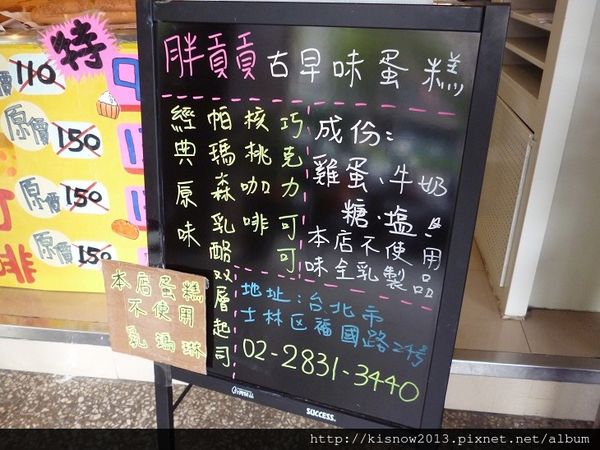 胖貢貢古早味蛋糕
經典原味
帕瑪森乳酪双層起司
核桃咖啡
巧克力可可
成份:
雞蛋、牛奶
糖.塩.
本店不使用
味全乳製品
地址:台北市
士林区福國路24号
02-2831-3440
本店蛋糕
不使用
乳瑪琳
SUCCESS.
特
110
原價
150
原價
150
原價
150
啡
http://kisnow2013.pixnet.net/album